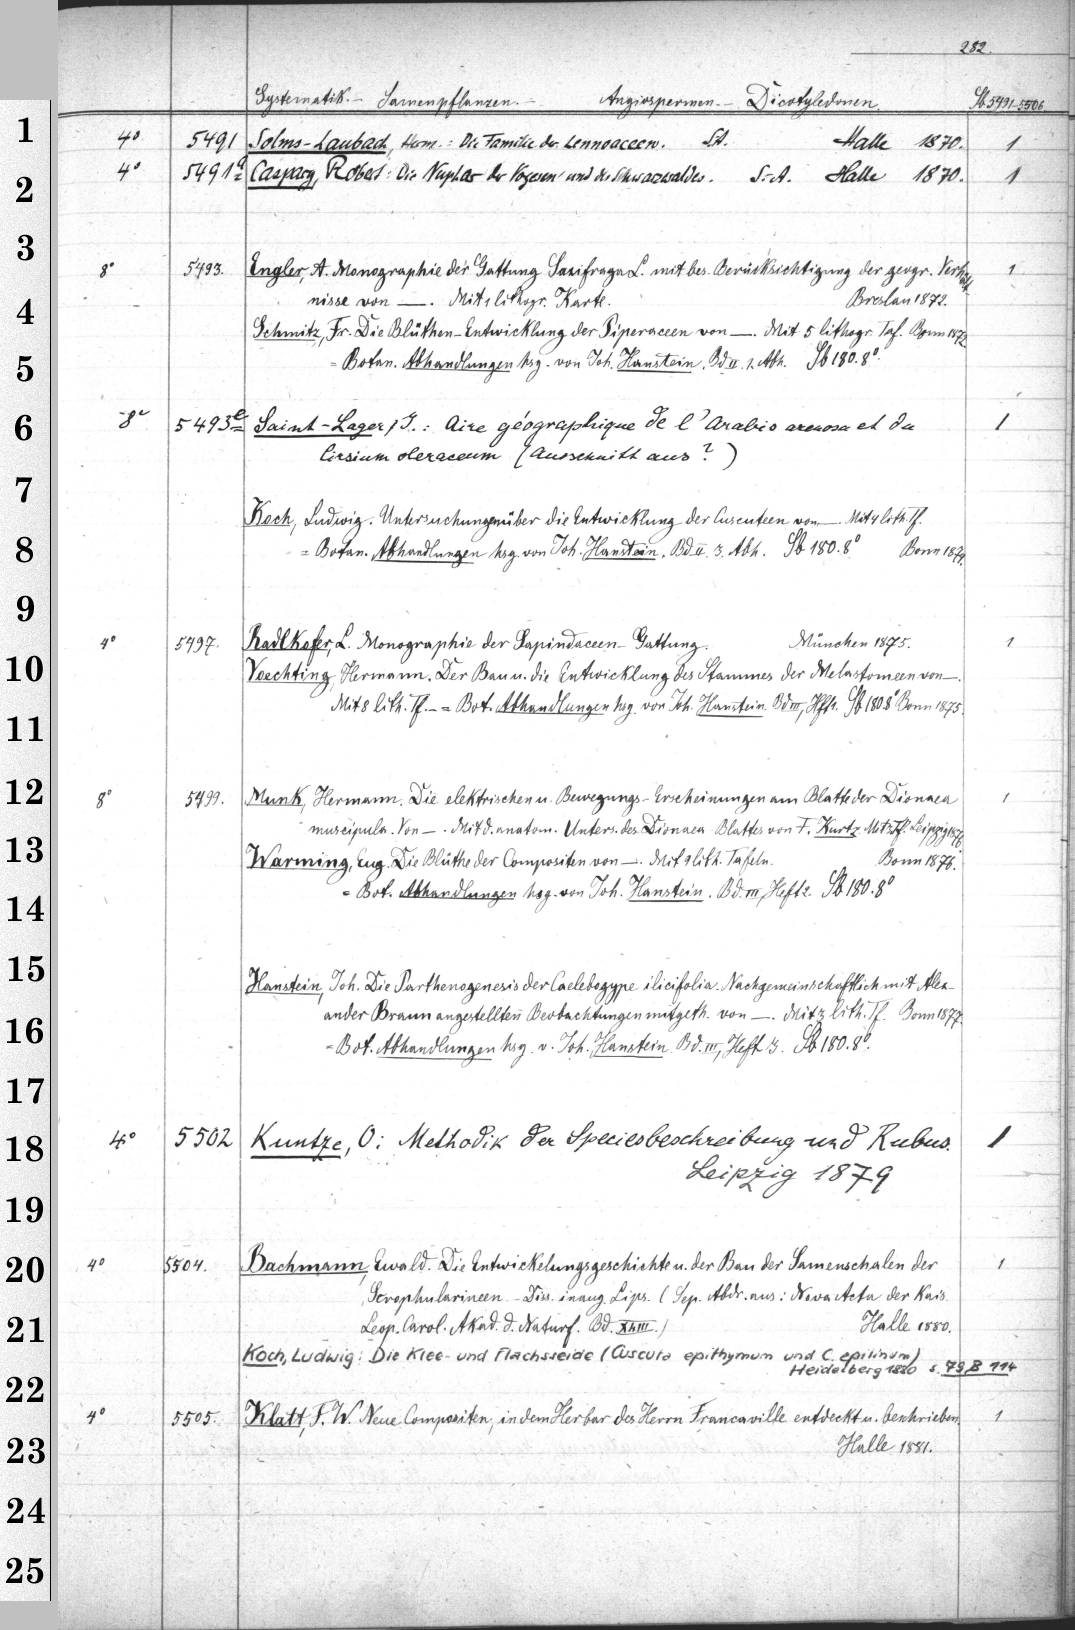 282.
Systematik. – Samenpflanzen. – Angiospermen – Dicotyledonen. Sb. 5491-5506
1
4° 5491 Solms-Laubach, Herm.: Die Familie der Lennoaceen. S.A. Halle 1870. 1
2
4° 5491a Caspary, Robert: Die Nuphar der Vogesen und des Schwarzwaldes. S.A. Halle 1870. 1
3
8° 5493. Engler, A. Monographie der Gattung Saxifraga L. mit bes. Berücksichtigung der geogr. Verhält- 1
4
nisse von —. Mit 1 lithogr. Karte. Breslau 1872.
Schmitz, Fr. Die Blüthen-Entwicklung der Piperaceen von —. Mit 5 lithogr. Taf. Bonn 1872
5
= Botan. Abhandlungen hsg. von Joh. Hanstein. Bd. II. 1. Abh. Sb 180.8°.
6
8° 5493e Saint-Lager, J.: Aire géographique de l'Arabis arenosa et du 1
Cirsium oleraceum (Ausschnitt aus?)
7
Koch, Ludwig. Untersuchungen über die Entwicklung der Cuscuteen von —. Mit 4 lith. Tf.
8
= Botan. Abhandlungen hsg. von Joh. Hanstein. Bd. II. 3. Abh. Sb 180.8° Bonn 1874.
9
4° 5497. Radlkofer, L. Monographie der Sapindaceen-Gattung. München 1875. 1
10
Voechting, Hermann. Der Bau u. die Entwicklung des Stammes der Melastomeen von —.
Mit 8 lith. Tf. – = Bot. Abhandlungen hsg. von Joh. Hanstein. Bd. III, Hft 1. Sb 180.8° Bonn 1875.
11
12
8° 5499. Munk, Hermann. Die elektrischen u. Bewegungs-Erscheinungen am Blatte der Dionaea 1
muscipula. Von —. Mit d. anatom. Unters. des Dionaea Blattes von F. Kurtz. Mit 3 Tf. Leipzig 1876.
13
Warming, Eug. Die Blüthe der Compositen von —. Mit 9 lith. Tafeln. Bonn 1876.
= Bot. Abhandlungen hsg. von Joh. Hanstein. Bd. III, Heft 2. Sb 180.8°
14
15
Hanstein, Joh. Die Parthenogenesis der Caelebogyne ilicifolia. Nach gemeinschaftlich mit Alex-
ander Braun angestellten Beobachtungen mitgeth. von —. Mit 3 lith. Tf. Bonn 1877.
16
= Bot. Abhandlungen hsg. v. Joh. Hanstein. Bd. III, Heft 3. Sb 180.8°.
17
18
4° 5502 Kuntze, O: Methodik der Speciesbeschreibung und Rubus. 1
Leipzig 1879
19
20
4° 5504. Bachmann, Ewald. Die Entwickelungsgeschichte u. der Bau der Samenschalen der 1
Scrophularineen. – Diss. inaug. Lips. (Sep. Abdr. aus: Nova Acta der Kais.
21
Leop. Carol. Akad. d. Naturf. Bd. XLIII.) Halle 1880.
Koch, Ludwig: Die Klee- und Flachsseide (Cuscuta epithymum und C. epilinum)
Heidelberg 1880 s. 79 B 114
22
4° 5505. Klatt, F. W. Neue Compositen, in dem Herbar des Herrn Francaville entdeckt u. beschrieben. 1
23
Halle 1881.
24
25